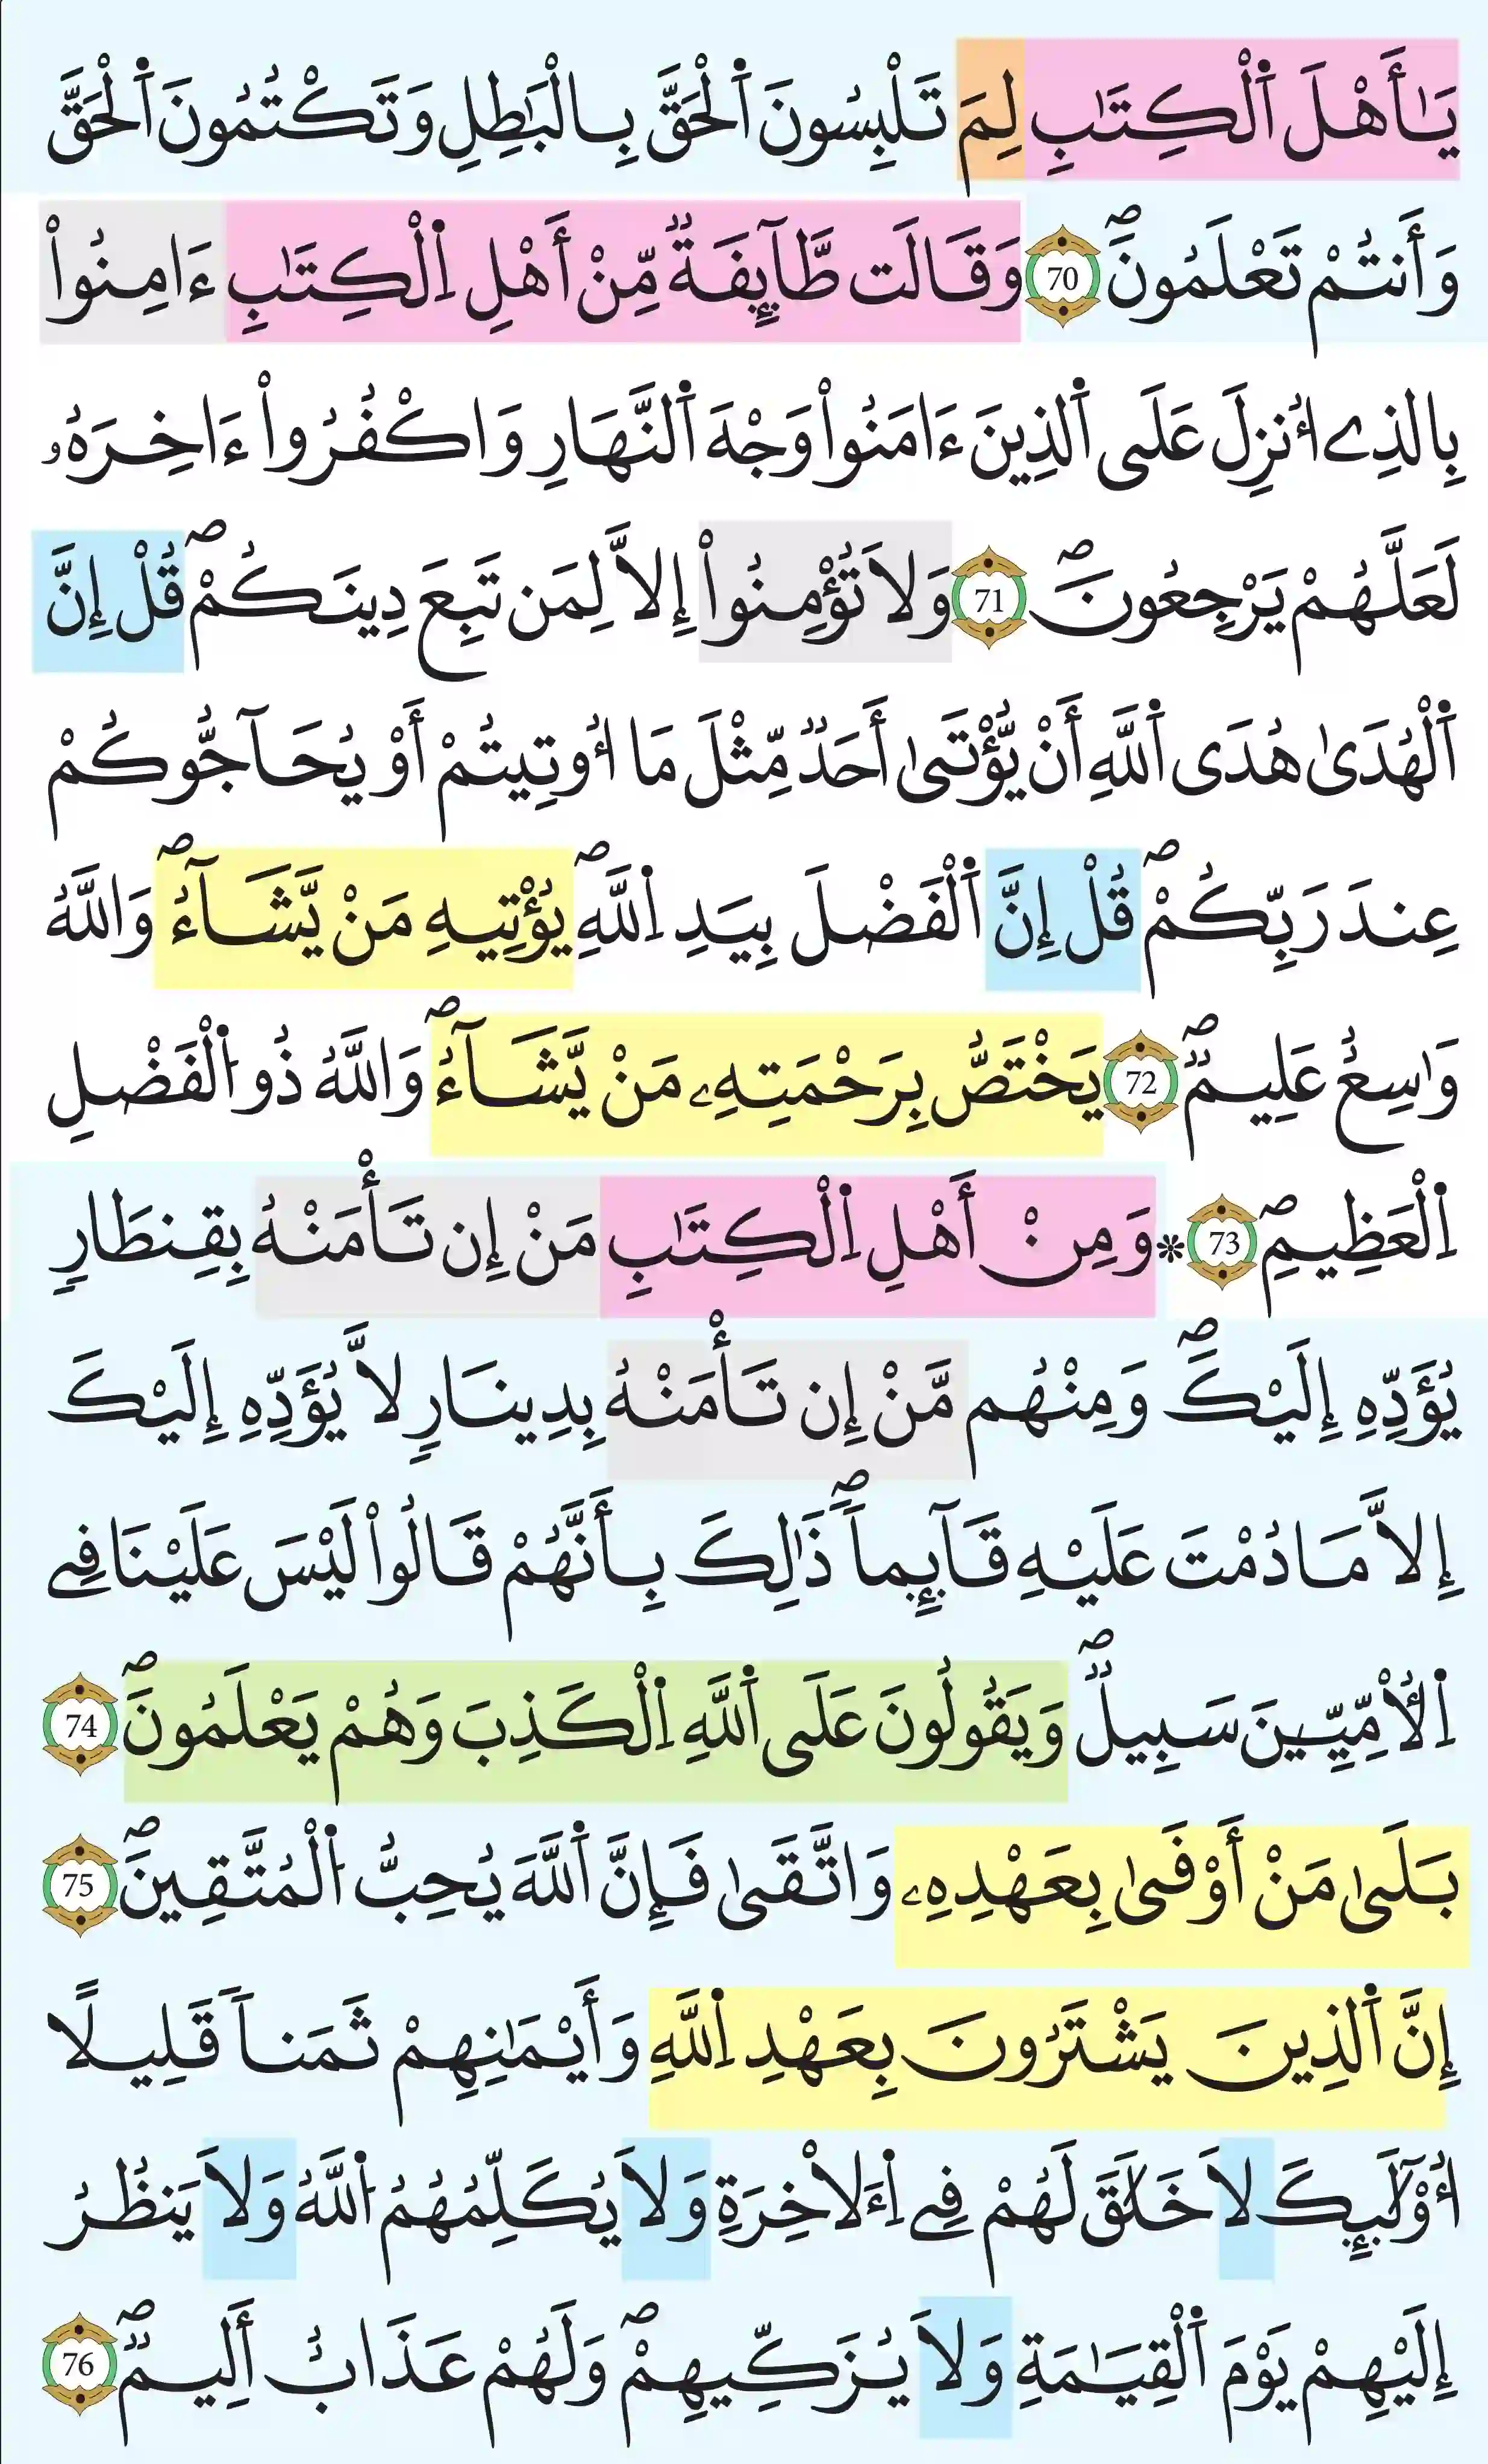 يَٰأَهْلَ اَ۬لْكِتَٰبِ لِمَ تَلْبِسُونَ اَ۬لْحَقَّ بِالْبَٰطِلِ وَتَكْتُمُونَ اَ۬لْحَقَّ
وَأَنتُمْ تَعْلَمُونَۖ 70 وَقَالَت طَّآئِفَةٞ مِّنْ أَهْلِ اِ۬لْكِتَٰبِ ءَامِنُواْ
بِالذِے أُنزِلَ عَلَي اَ۬لذِينَ ءَامَنُواْ وَجْهَ اَ۬لنَّهَارِ وَاكْفُرُواْ ءَاخِرَهُۥ
لَعَلَّهُمْ يَرْجِعُونَۖ 71 وَلَا تُؤْمِنُواْ إِلَّا لِمَن تَبِعَ دِينَكُمْۖ قُلْ إِنَّ
اَ۬لْهُد۪يٰ هُدَي اَ۬للَّهِ أَنْ يُّؤْت۪يٰ أَحَدٞ مِّثْلَ مَا أُوتِيتُمْ أَوْ يُحَآجُّوكُمْ
عِندَ رَبِّكُمْۖ قُلْ إِنَّ اَ۬لْفَضْلَ بِيَدِ اِ۬للَّهِۖ يُؤْتِيهِ مَنْ يَّشَآءُۖ وَاللَّهُ
وَٰسِعٌ عَلِيمٞۖ 72 يَخْتَصُّ بِرَحْمَتِهِۦ مَنْ يَّشَآءُۖ وَاللَّهُ ذُو اُ۬لْفَضْلِ
اِ۬لْعَظِيمِۖ 73 * وَمِنْ أَهْلِ اِ۬لْكِتَٰبِ مَنْ إِن تَأْمَنْهُ بِقِنطَارٖ
يُؤَدِّهِ إِلَيْكَۖ وَمِنْهُم مَّنْ إِن تَأْمَنْهُ بِدِينَارٖ لَّا يُؤَدِّهِ إِلَيْكَ
إِلَّا مَا دُمْتَ عَلَيْهِ قَآئِماٗۖ ذَٰلِكَ بِأَنَّهُمْ قَالُواْ لَيْسَ عَلَيْنَا فِے
اِ۬لْأُمِّيِّـۧنَ سَبِيلٞۖ وَيَقُولُونَ عَلَي اَ۬للَّهِ اِ۬لْكَذِبَ وَهُمْ يَعْلَمُونَۖ 74
بَل۪يٰ مَنْ أَوْف۪يٰ بِعَهْدِهِۦ وَاتَّق۪يٰ فَإِنَّ اَ۬للَّهَ يُحِبُّ اُ۬لْمُتَّقِينَۖ 75
إِنَّ اَ۬لذِينَ يَشْتَرُونَ بِعَهْدِ اِ۬للَّهِ وَأَيْمَٰنِهِمْ ثَمَناٗ قَلِيلًا
أُوْلَٰٓئِكَ لَا خَلَٰقَ لَهُمْ فِے اِ۬لَاخِرَةِ وَلَا يُكَلِّمُهُمُ اُ۬للَّهُ وَلَا يَنظُرُ
إِلَيْهِمْ يَوْمَ اَ۬لْقِيَٰمَةِ وَلَا يُزَكِّيهِمْۖ وَلَهُمْ عَذَابٌ أَلِيمٞۖ 76